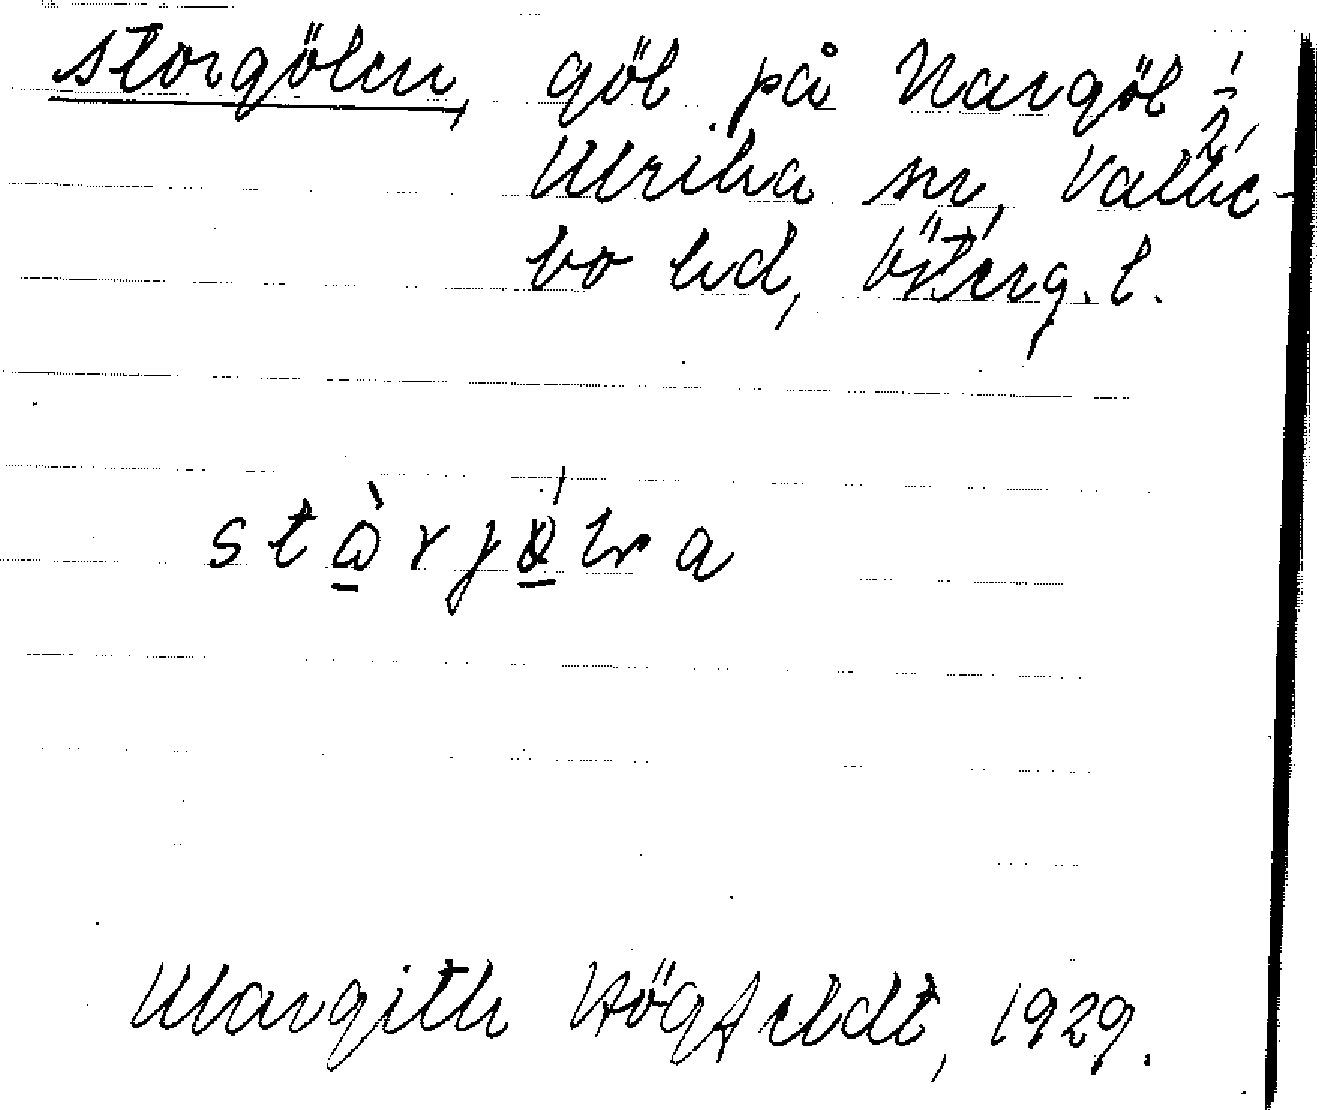 Storgölen, göl på Nargöl 1/2,
Ulrika sn, Valke-
bo hd, Österg. l.
stɷ̀rjø̀lwa
Margith Högfeldt, 1929.